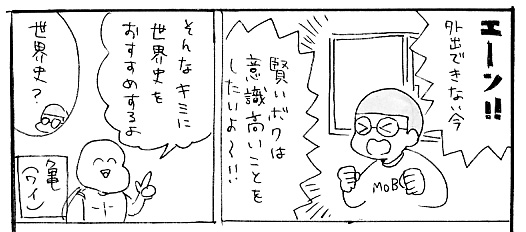 エーン!!
外出できない今
賢いボクは
意識高いことを
したいよ〜!!
MOB
そんなキミに
世界史を
おすすめするよ
世界史?
亀
(ワイ)